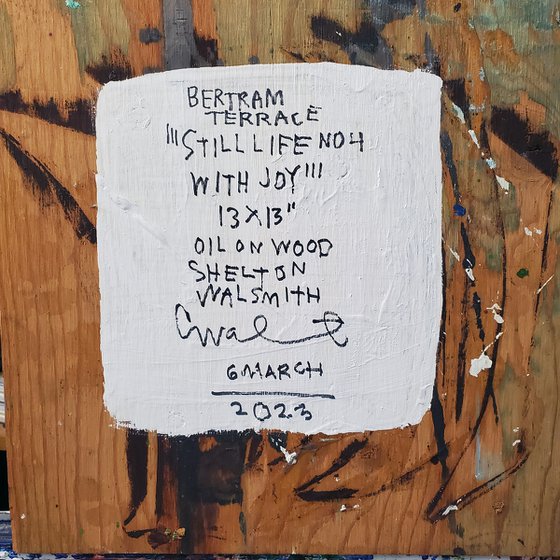 BERTRAM
TERRACE
"'STILL LIFE NO 4
WITH JOY"'
13 X 13"
OIL ON WOOD
SHELTON
WALSMITH
6 MARCH
2023